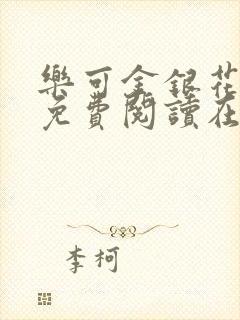 樂可金銀花
免費閱讀在
李柯